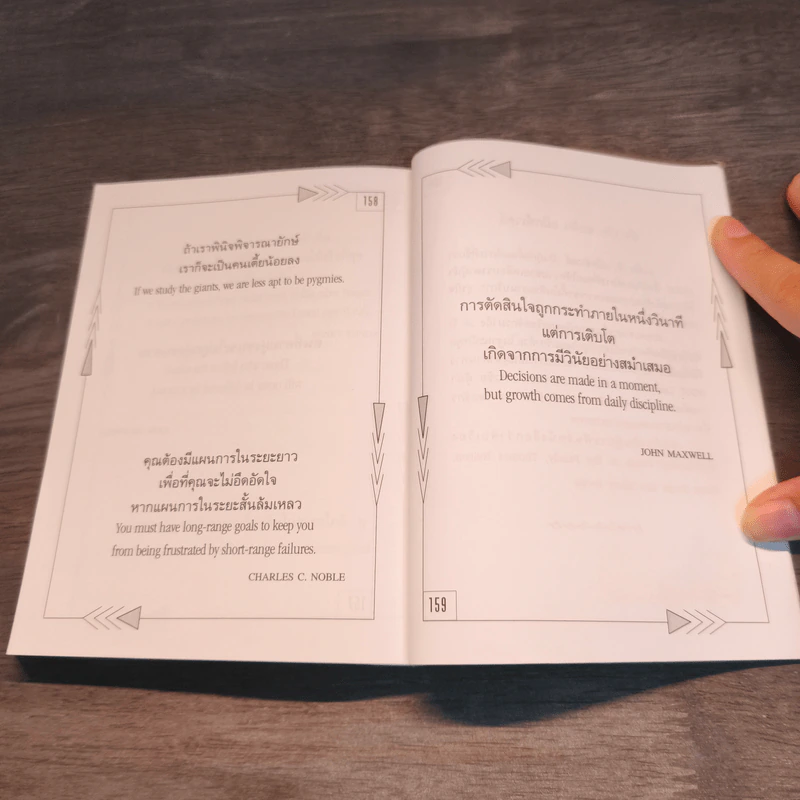 158
ถ้าเราพินิจพิจารณายักษ์
เราก็จะเป็นคนเตี้ยน้อยลง
If we study the giants, we are less apt to be pygmies.
คุณต้องมีแผนการในระยะยาว
เพื่อที่คุณจะไม่อึดอัดใจ
หากแผนการในระยะสั้นล้มเหลว
You must have long-range goals to keep you
from being frustrated by short-range failures.
CHARLES C. NOBLE
การตัดสินใจถูกกระทำภายในหนึ่งวินาที
แต่การเติบโต
เกิดจากการมีวินัยอย่างสม่ำเสมอ
Decisions are made in a moment,
but growth comes from daily discipline.
JOHN MAXWELL
159